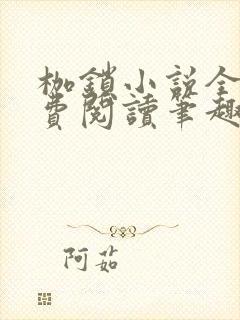 枷鎖小説全
費閱讀筆趣
阿茹